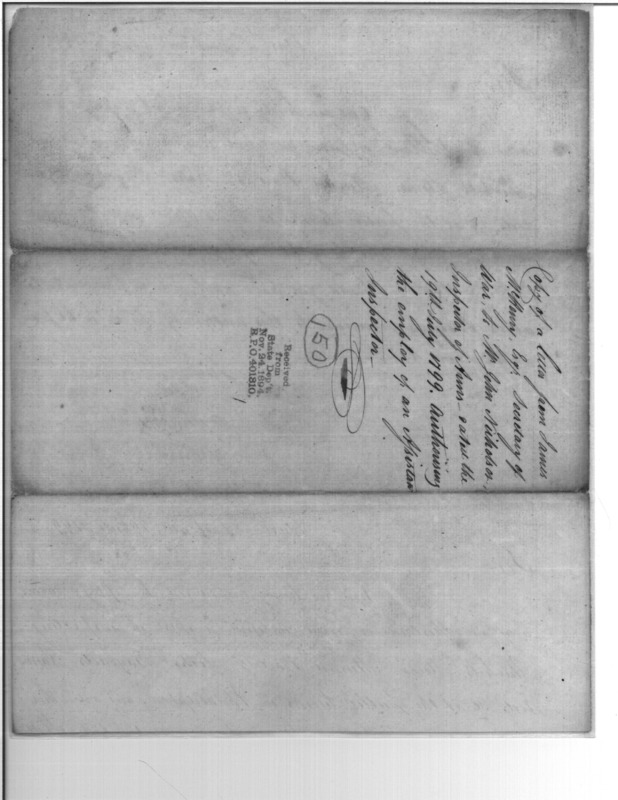 Copy of a letter from James
McHenry, Esqr. Secretary of
War, to Mr. John Nicholson,
Inspector of Arms - dated the
19th July 1799. Authorising
the employ of an Assistan
Inspector -
150
Received
from
State Dep't.
Nov. 24, 1894.
R.P.O. 401810.